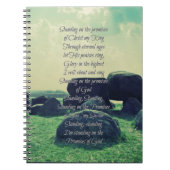 Standing on the promises
of Christ my King
Through eternal ages
let His praises ring,
Glory in the highest
I will shout and sing
Standing on the promises
of God
Standing, Standing,
Standing on the Promises
Standing, standing
I'm standing on the
Promises of God